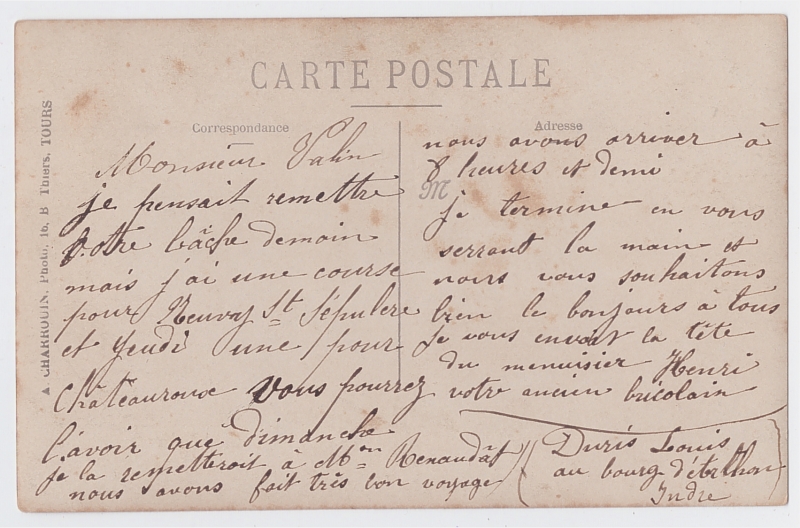 CARTE POSTALE
Correspondance
Adresse
A. CHARROUIN, Photo, 16, B Thiers, TOURS
Monsieur Valin
je pensait remettre
votre bâche demain
mais j'ai une course
pour Neuvy St Sépulcre
et jeudi une pour
Châteauroux vous pourrez
l'avoir que dimanche
je la remetterait à Mon Renaudat
nous avons fait très bon voyage
nous avons arriver à
8 heures et demi
M
je termine en vous
serrant la main et
nous vous souhaitons
bien le bonjours à tous
je vous envoit la tête
du menuisier Henri
votre ancien bricolain
Duris Louis
au bourg d'étrechon
Indre